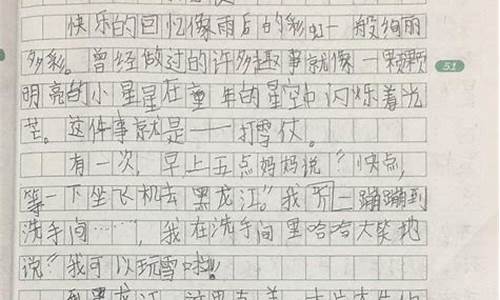 快乐的回忆像雨后的彩虹一般绚丽
多彩。曾经做过的许多趣事就像一颗颗
明亮的小星星在童年的星空中闪烁着光
芒。这件事就是——打雪仗。
有一次,早上五点妈妈说“快点,
等一下坐飞机去黑龙江。”我一蹦蹦到
洗手间……,我在洗手间里哈哈大笑地
说“我可以玩雪啦!”
51